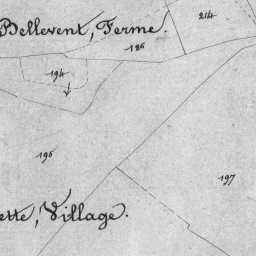 Bellevent, Ferme.
214
186
194
196
197
ette, Village.